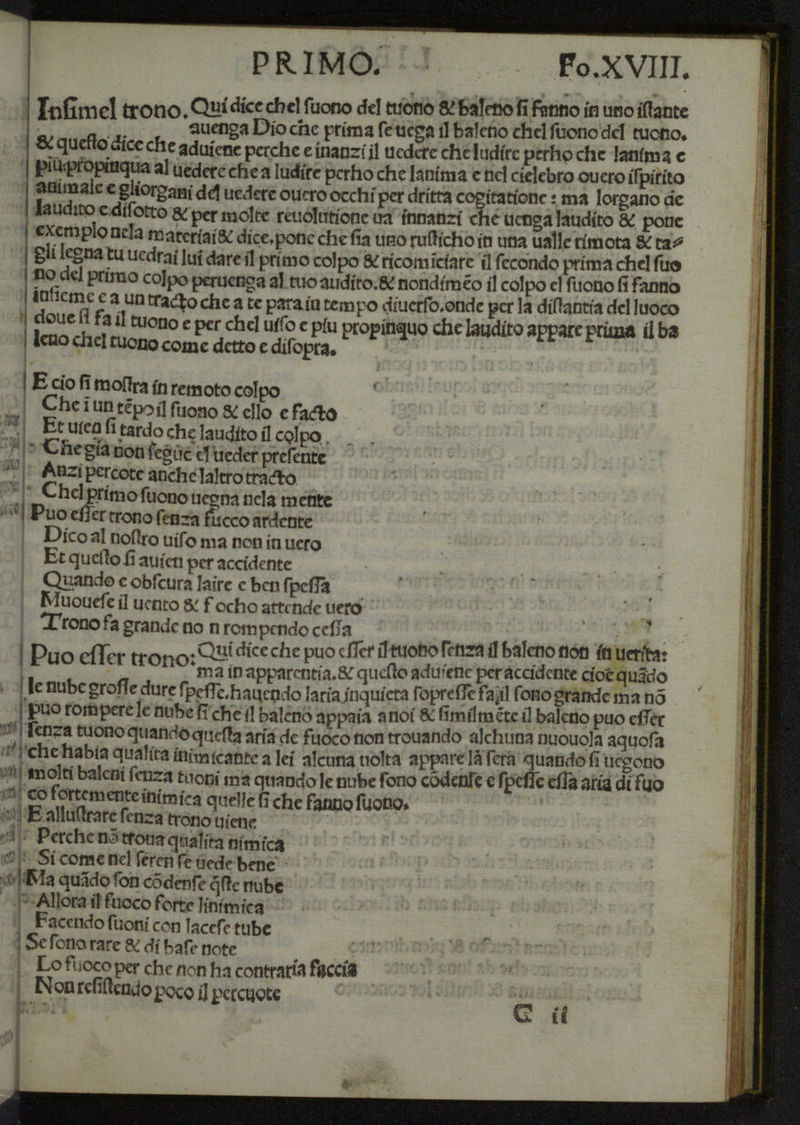 PRIMO. Fo.XVIII.
Inſimel trono. Qui dice chel ſuono del tuono & baleno ſi fanno in uno iſtante
auenga Dio che prima ſe uega il baleno chel ſuono del tuono.
& queſto dice che aduiene perche e inanzi il uedere che ludire perho che lanima e
piu propinqua al uedere che a ludire perho che lanima e nel cielebro ouero iſpirito
animale e gliorgani del uedere ouero occhi per dritta cogitatione : ma lorgano de
laudito e diſotto & per molte reuolutione ua innanzi che uenga laudito & pone
exemplo nela materiai& dice, pone che ſia uno ruſticho in una ualle rimota & ta⸗
gli legna tu uedrai lui dare il primo colpo & ricomiciare il ſecondo prima chel ſuo
no del primo colpo peruenga al tuo audito.& nondimēo il colpo el ſuono ſi fanno
inſieme e a un tracto che a te para in tempo diuerſo.onde per la diſtantia del luoco
doue ſi fa il tuono e per chel uiſo e piu propinquo che laudito appare prima il ba
leno chel tuono come detto e diſopra.
E cio ſi moſtra in remoto colpo
Che i un tēpo il ſuono & ello e facto
Et uien ſi tardo che laudito il colpo.
Che gia non ſegue el ueder preſente
Anzi percote anche laltro tracto
Chel primo ſuono uegna nela mente
Puo eſſer trono ſenza fucco ardente
Dico al noſtro uiſo ma non in uero
Et queſto ſi auien per accidente
Quando e obſcura laire e ben ſpeſſa
Muoueſe il uento & focho attende uero
Trono fa grande no n rompendo ceſſa
Puo eſſer trono: Qui dice che puo eſſer il tuono ſenza il baleno non in uerita:
ma in apparentia.& queſto aduiene per accidente cioe quādo
le nube groſſe dure ſpeſſe.hauendo laria inquieta ſopreſſe fa il ſono grande ma nō
puo rompere le nube ſi che il baleno appaia anoi & ſimilmēte il baleno puo eſſer
ſenza tuono quando queſta aria de fuoco non trouando alchuna nuouola aquoſa
che habia qualita inimicante a lei alcuna uolta appare la ſera quando ſi uegono
molti baleni ſenza tuoni ma quando le nube ſono cōdenſe e ſpeſſe eſſa aria di fuo
co fortemente inimica quelle ſi che fanno ſuono.
E alluſtrare ſenza trono uiene
Perche nō troua qualita nimica
Si come nel ſeren ſe uede bene
Ma quādo ſon cōdenſe q̄ſte nube
Allora il fuoco forte linimica
Facendo ſuoni con lacceſe tube
Se ſono rare & di baſe note
Lo fuoco per che non ha contraria faccia
Non reſiſtendo poco il percuote
G ii